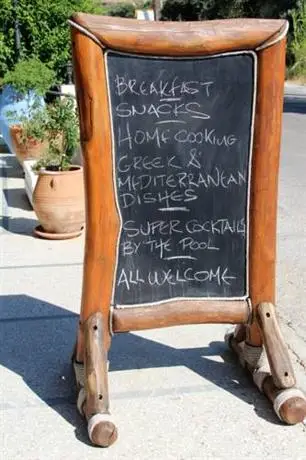 BREAKFAST
SNACKS
HOME COOKING
GREEK &
MEDITERRANEAN
DISHES
SUPER COCKTAILS
BY THE POOL
ALL WELCOME